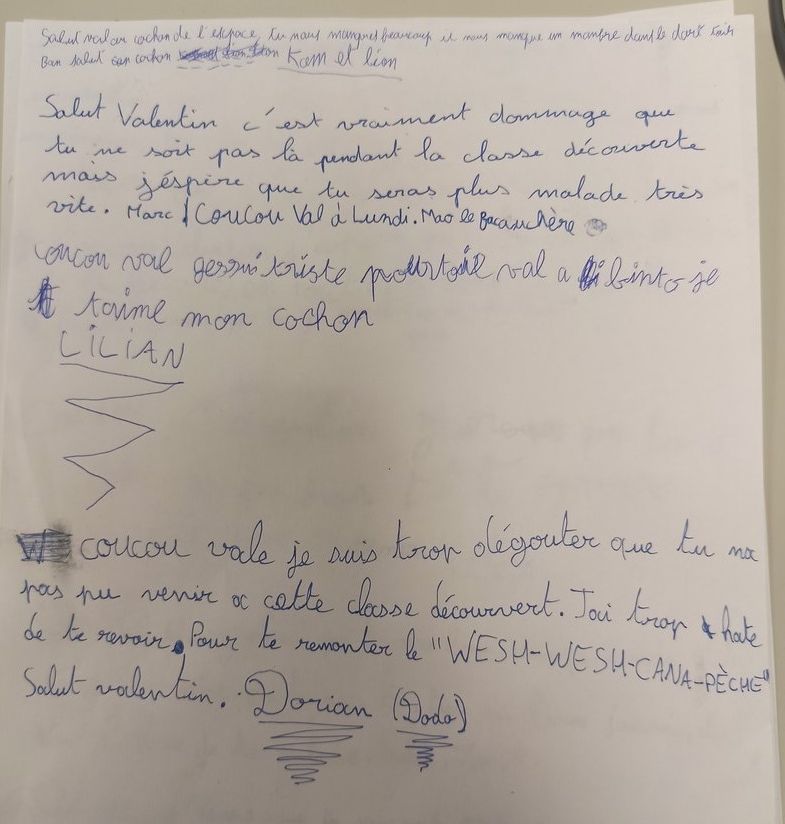 Salut valou cochon de l'espace, tu nous manques beaucoup il nous manque un membre dans le dortoir
Bon salut son cochon Kem et léon
Salut Valentin c'est vraiment dommage que
tu ne soit pas là pendant la classe découverte
mais j'éspère que tu seras plus malade très
vite. Marc / Coucou Val à Lundi. Mao le Bacauchère
coucou val gessui triste pourtoit val a binto je
t'aime mon cochon
LiLiAN
coucou vale je suis trop dégouter que tu na
pas pu venir a cette classe découvert. J'ai trop hate
de te revoir. Pour te remonter le "WESH-WESH-CANA-PÈCHE"
Salut valentin. Dorian (Dodo)